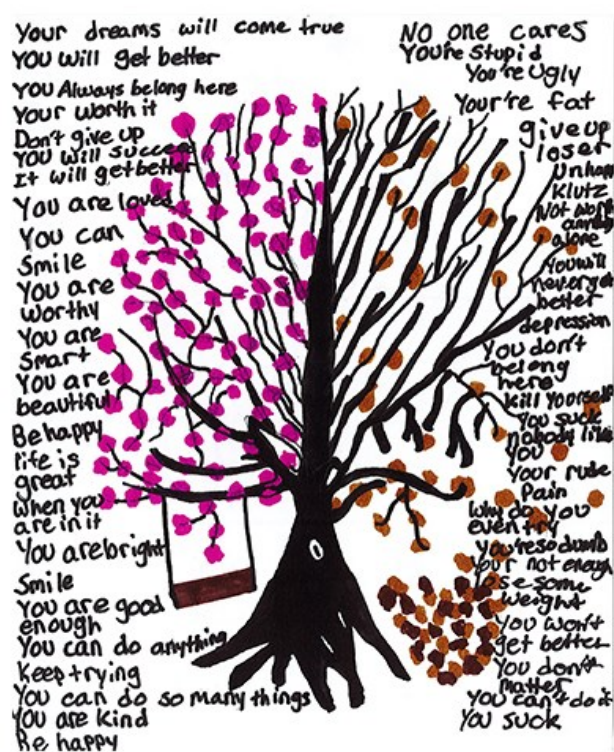 Your dreams will come true
YOU Will get better
YOU Always belong here
Your worth it
Don't give up
YOU Will succeed
It will get better
You are loved
You can
Smile
You are
worthy
You are
Smart
You are
beautiful
Be happy
life is
great
when you
are in it
You are bright
Smile
You are good
enough
You can do anything
Keep trying
You can do so many things
You are kind
Be happy
No one cares
You're Stupid
You're Ugly
Your're fat
give up
loser
Unhappy
Klutz
Not worth
alone
You will
never get
better
depression
You don't
belong
here
Kill Yourself
You suck
nobody like
YOU
Your rude
Pain
Why do you
even try
You're so dumb
Your not enough
lose some
weight
You won't
get better
You don't
matter
You can't do it
You suck